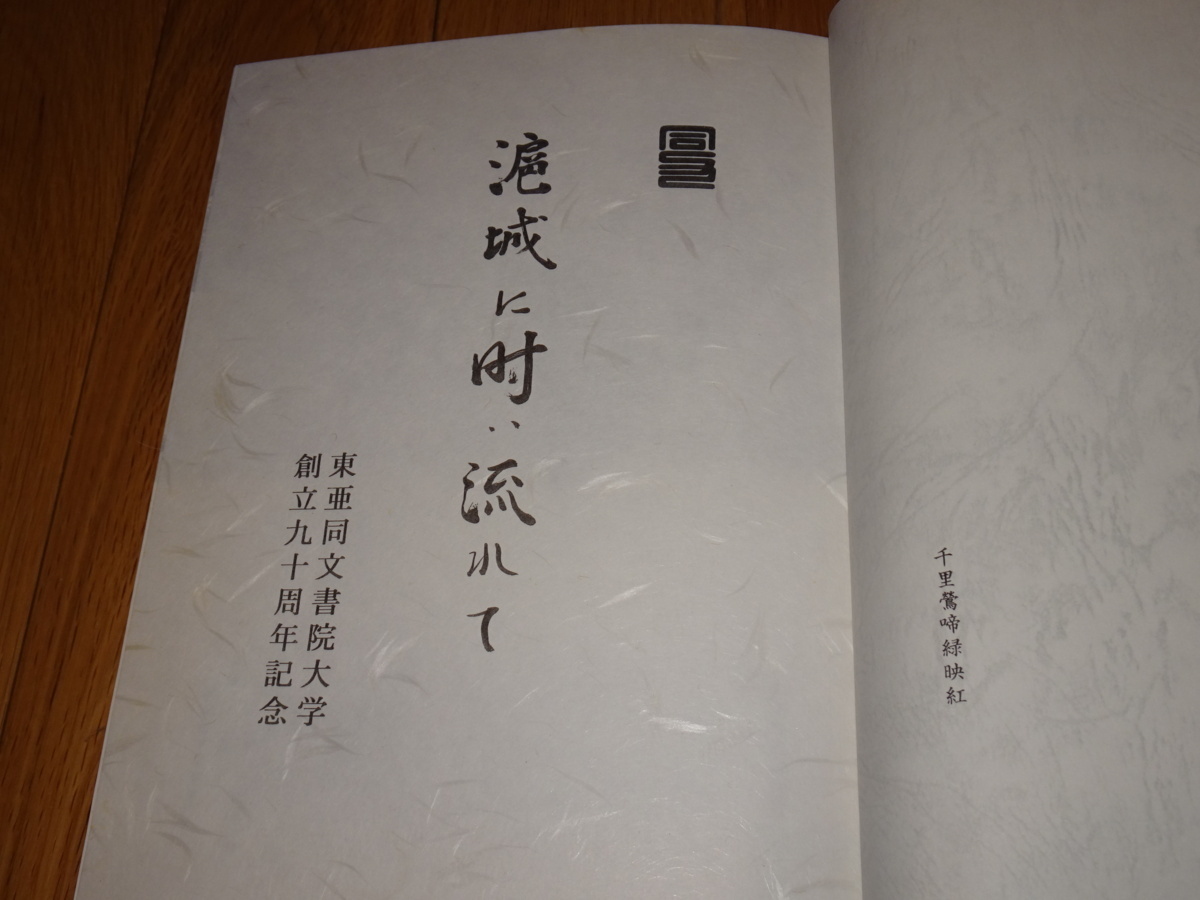 千里鶯啼緑映紅
滬城に时は流れて
東亜同文書院大学
創立九十周年記念